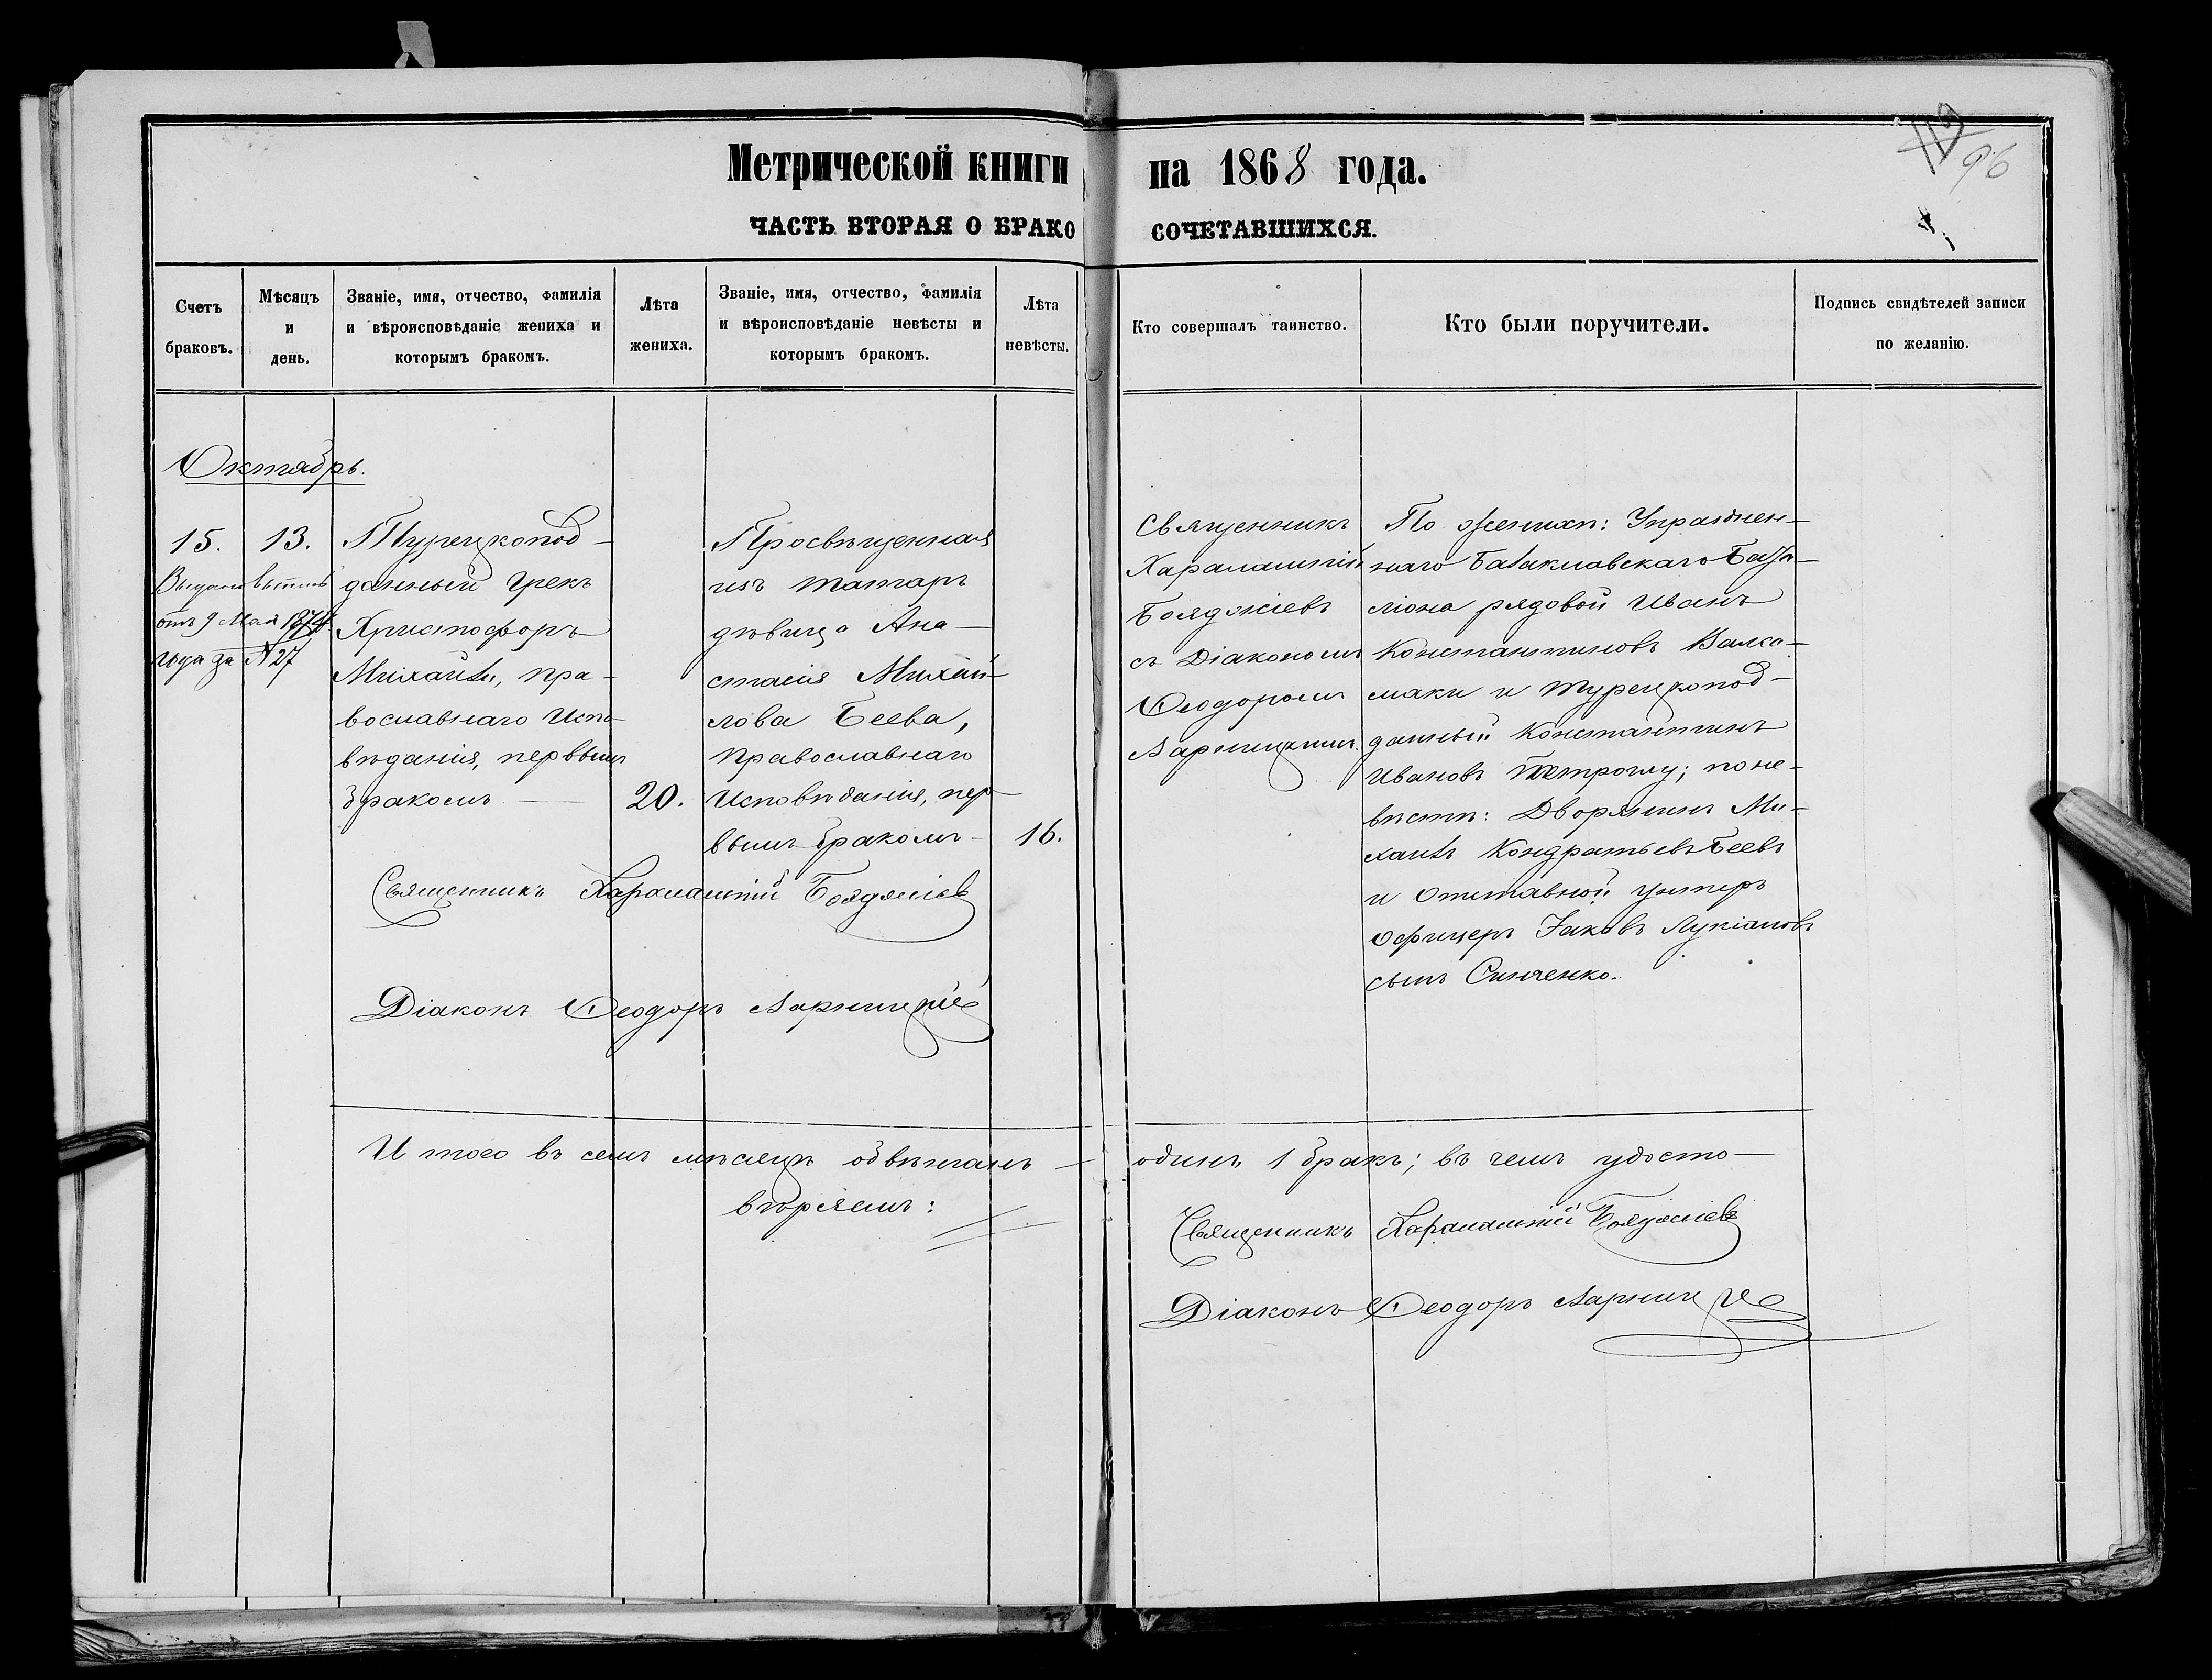 Метрической книги на 1868 года.
119
96
ЧАСТЬ ВТОРАЯ О БРАКОСОЧЕТАВШИХСЯ.
Счетъ
браковъ.
Мѣсяцъ
и
день.
Званіе, имя, отчество, фамилія
и вѣроисповѣданіе жениха и
которымъ бракомъ.
Лѣта
жениха.
Званіе, имя, отчество, фамилія
и вѣроисповѣданіе невѣсты и
которымъ бракомъ.
Лѣта
невѣсты.
Кто совершалъ таинство.
Кто были поручители.
Подпись свидѣтелей записи
по желанію.
Октябрь.
15.
13.
Выдана
отъ 9 Мая 1874
года за №27
Турецкопод-
данный Грекъ
Христофоръ
Михаилъ, пра-
вославнаго Испо-
вѣданія, первымъ
бракомъ —
20.
Просвѣщенная
изъ татаръ
дѣвица Ана-
стасія Михаи-
лова Беева,
Православнаго
Исповѣданія, пер-
вымъ бракомъ -
16.
Священникъ
Харалампій
Бояджіевъ
съ Діакономъ
Ѳеодоромъ
Варницкимъ
По женихѣ: Упразднен-
наго Балаклавскаго Бата-
ліона рядовой Иванъ
Константиновъ Валса-
маки и турецкопод-
данный Константинъ
Ивановъ; по не-
вѣстѣ: Дворянинъ Ми-
хаилъ Кондратьевъ Беевъ
и Отставной унтеръ
Офицеръ Іаковъ Лукіановъ
сынъ Синченко.
Священникъ Харалампій Бояджіевъ
Діаконъ Ѳеодоръ Варницкій
И того въ семъ мѣсяцѣ обвѣнчанъ — одинъ 1 бракъ; въ чемъ удосто-
вѣряемъ:
Священникъ Харалампій Бояджіевъ
Діаконъ Ѳеодоръ Варницкій